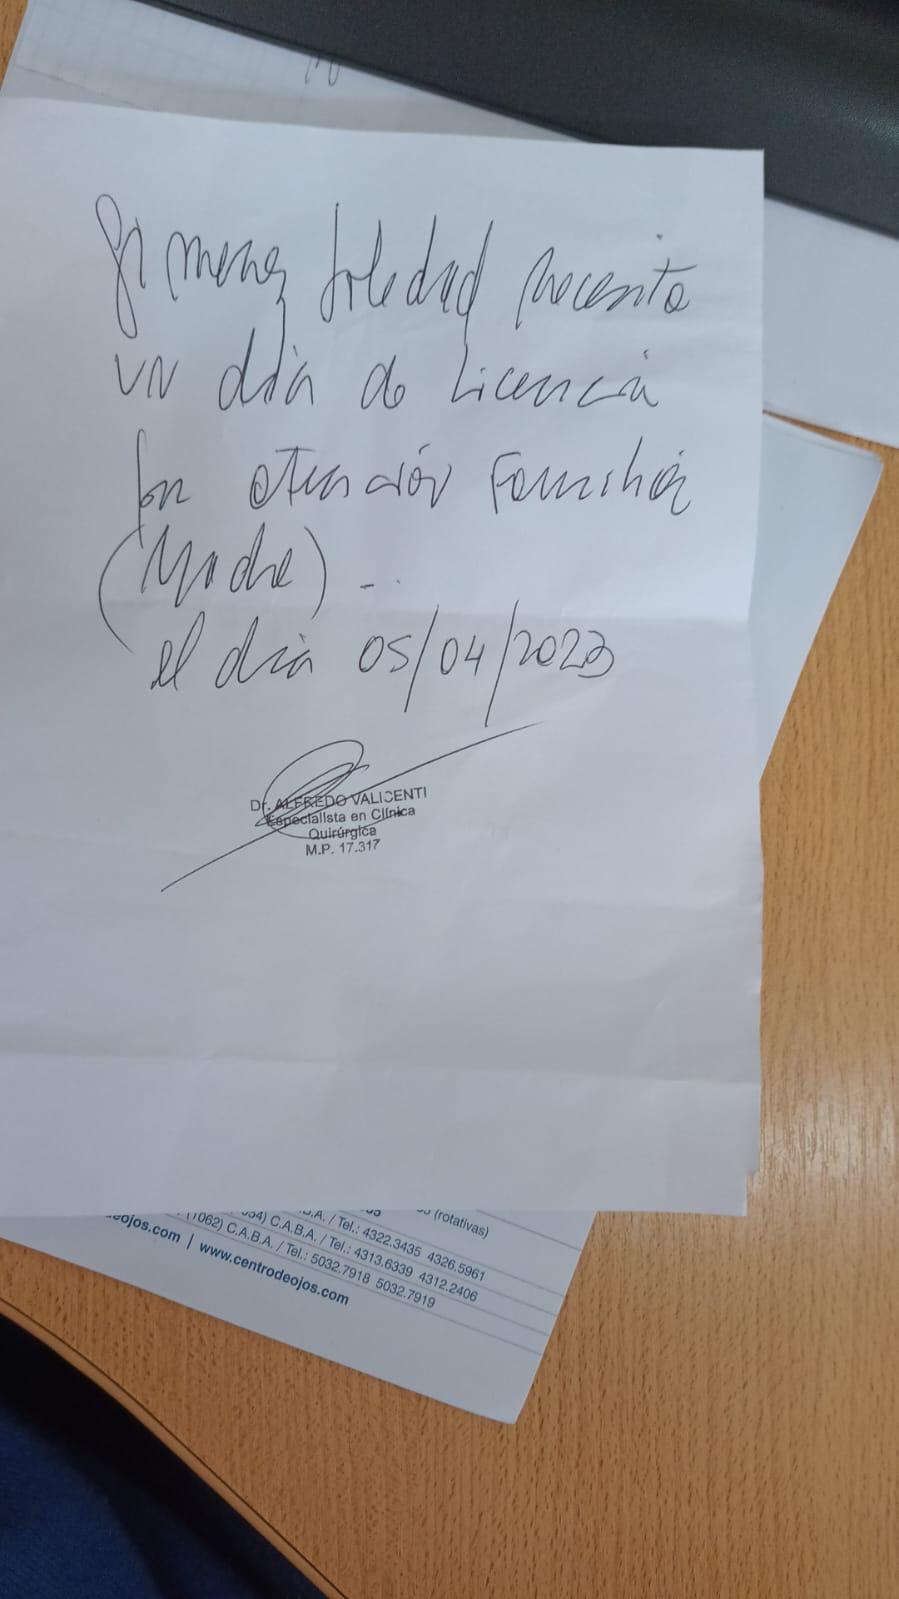 Gimenez Soledad necesita
un día de Licencia
por atención Familiar
(Madre) -..
el día 05/04/2023
Dr. ALFREDO VALICENTI
Especialista en Clínica
Quirúrgica
M.P. 17.317
(rotativas)
.A. / Tel.: 4322.3435 4326.5961
C.A.B.A. / Tel.: 4313.6339 4312.2406
(1062) C.A.B.A. / Tel.: 5032.7918 5032.7919
eojos.com | www.centrodeojos.com